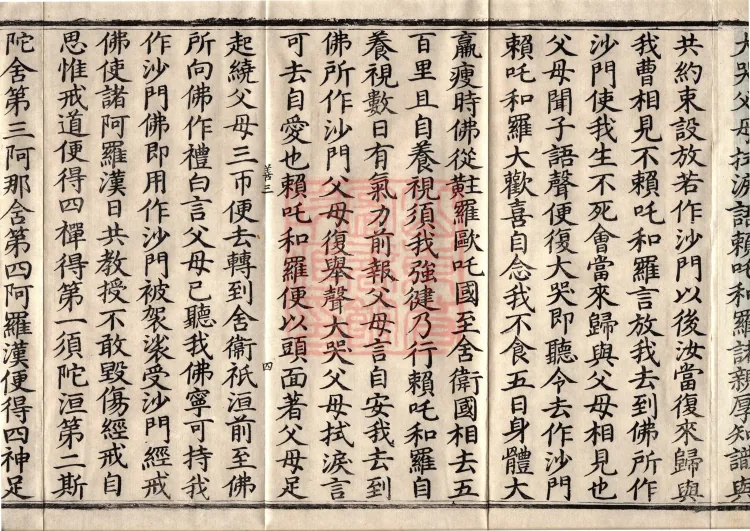 大哭父母拭淚語賴吒和羅諸親厚知識與
共約束設放若作沙門以後汝當復來歸與
我曹相見不賴吒和羅言放我去到佛所作
沙門使我生不死會當來歸與父母相見也
父母聞子語聲便復大哭即聽令去作沙門
賴吒和羅大歡喜自念我不食五日身體大
羸瘦時佛從黈羅歐吒國至舍衛國相去五
百里且自養視須我強健乃行賴吒和羅自
養視數日有氣力前報父母言自安我去到
佛所作沙門父母復舉聲大哭父母拭淚言
可去自愛也賴吒和羅便以頭面著父母足
善三 四
起繞父母三帀便去轉到舍衛祇洹前至佛
所向佛作禮白言父母已聽我佛寧可持我
作沙門佛即用作沙門被袈裟受沙門經戒
佛使諸阿羅漢日共教授不敢毀傷經戒自
思惟戒道便得四禪得第一須陀洹第二斯
陀舍第三阿那舍第四阿羅漢便得四神足